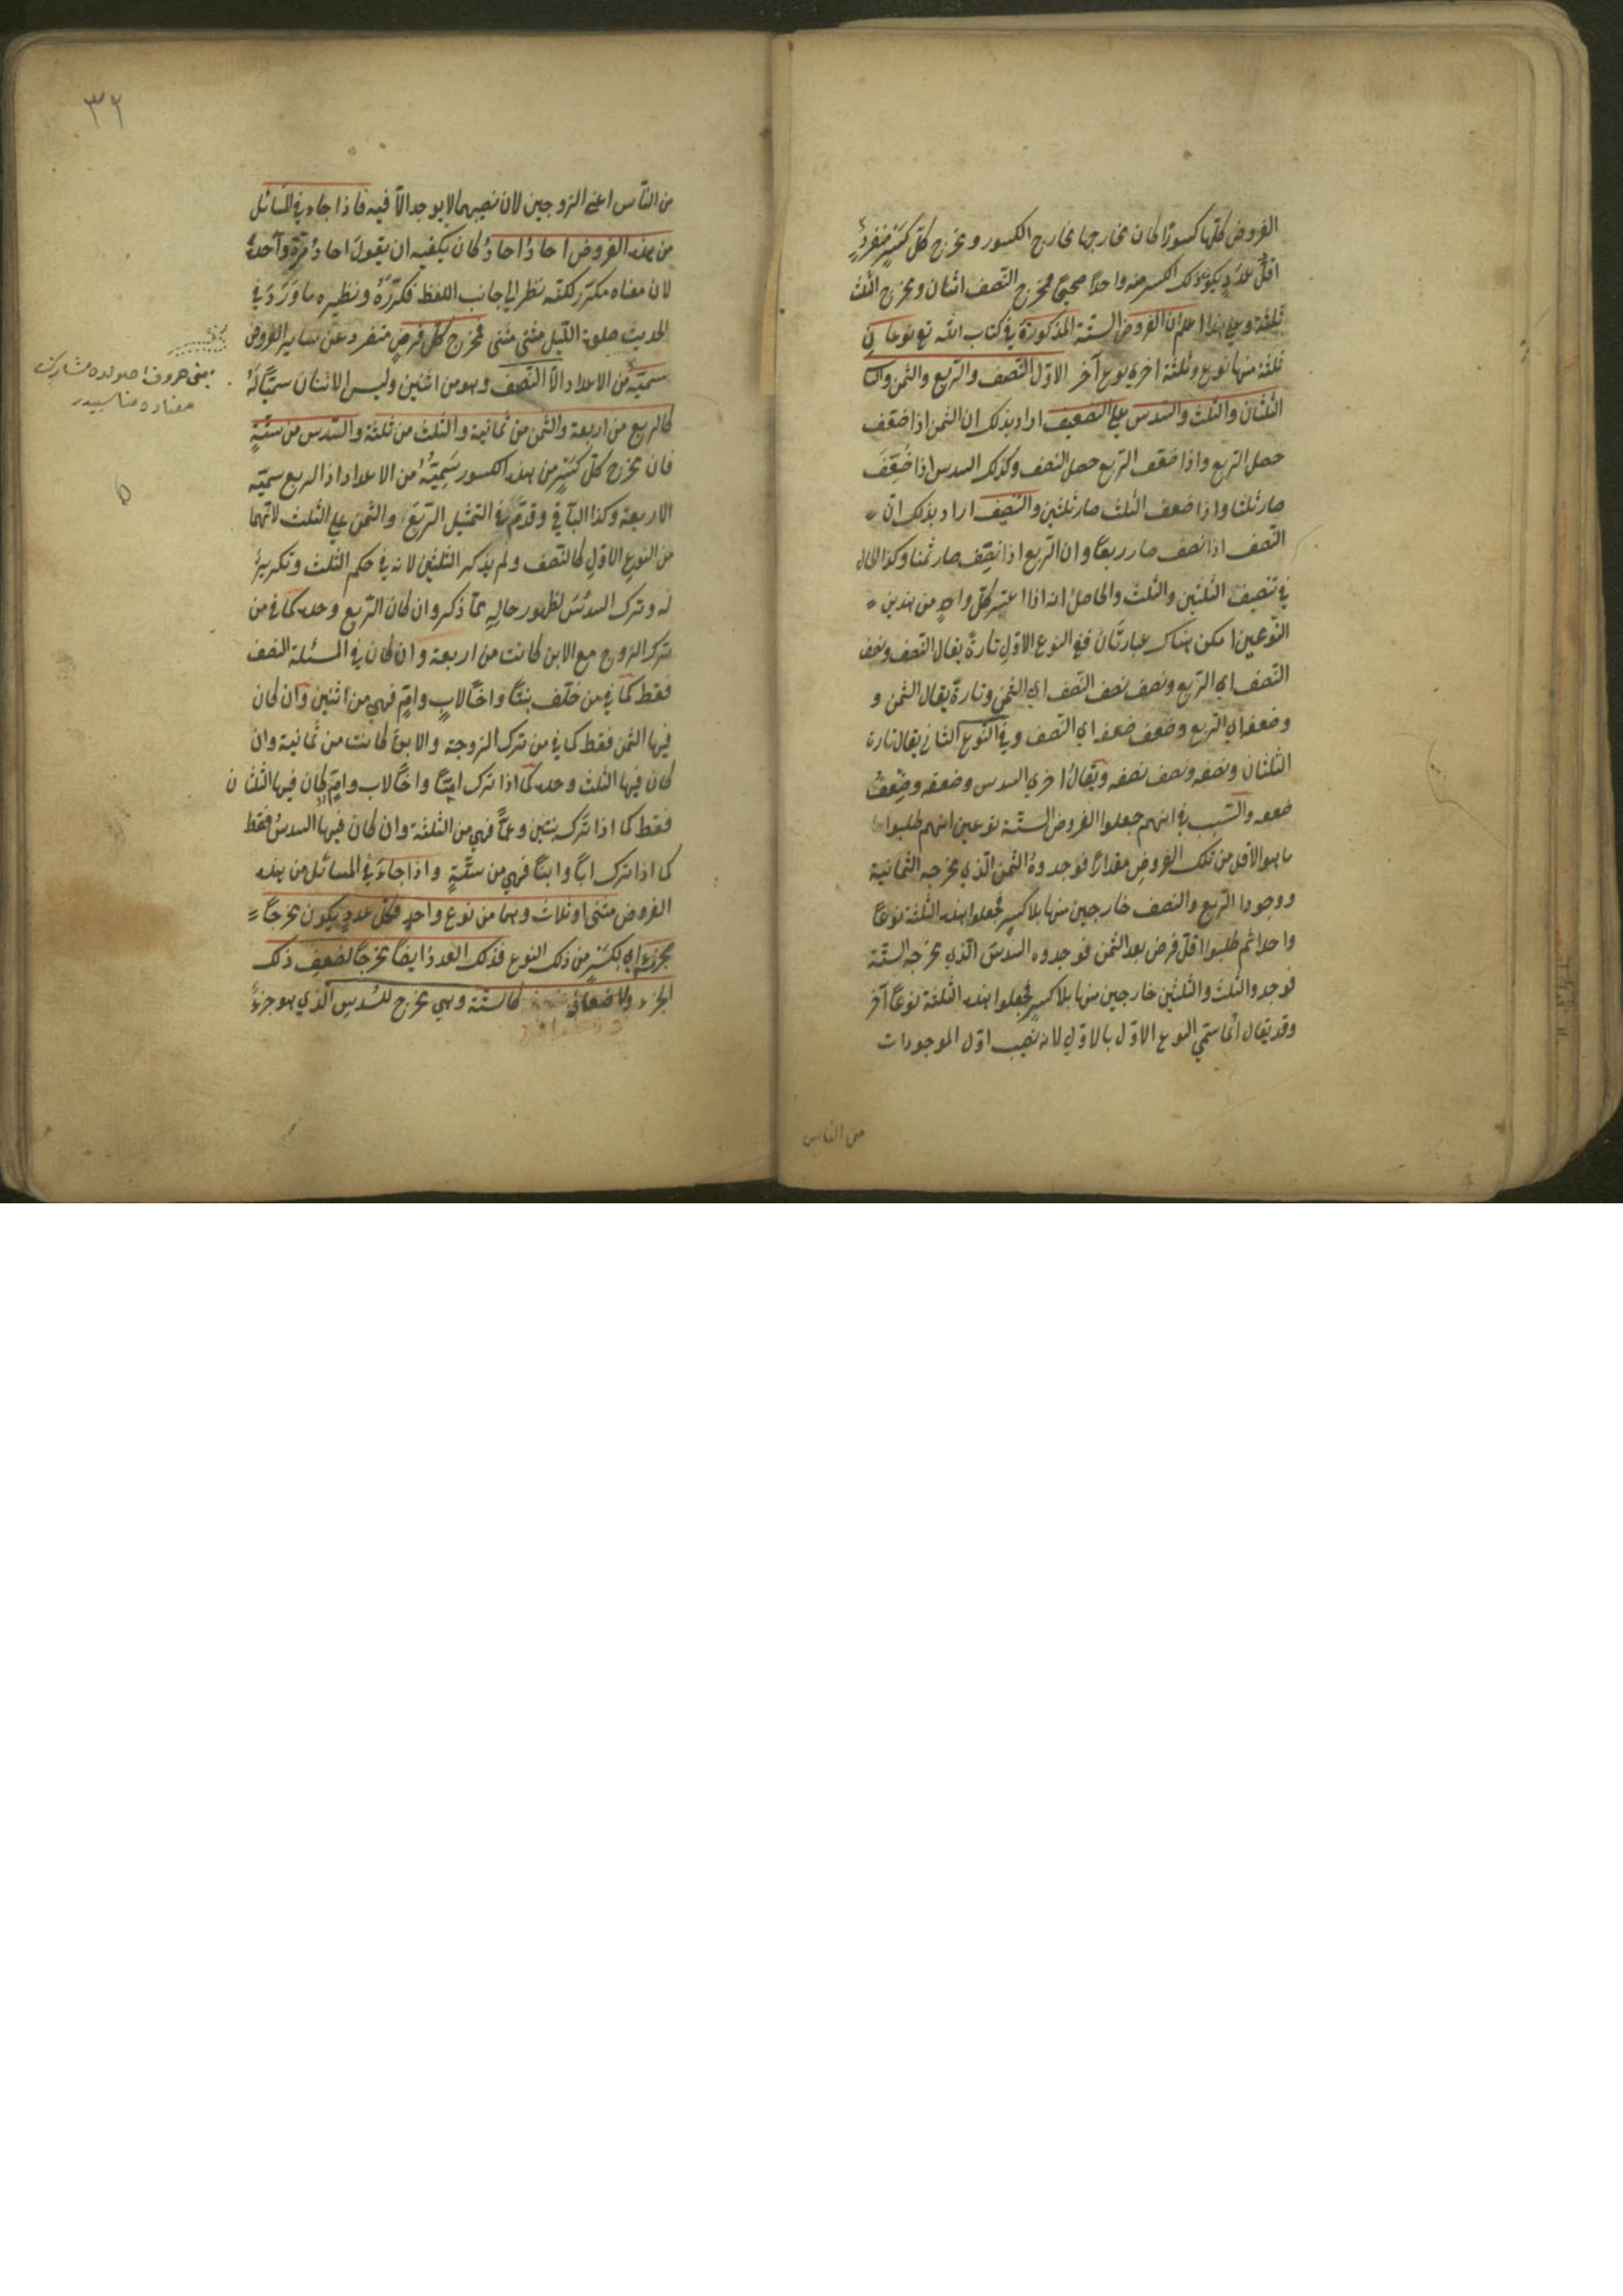 الفروض كلّها كسورًا كان مخارجها مخارج الكسور ومخرج كلّ كسرٍ منفردٍ
اقلُّ عددٍ يكون ذلك الكسر منه واحدًا صحيحًا فمخرج النّصف اثنان ومخرج الثلث
ثلثة وعلى هذا اعلم ان الفروض الستّة المذكورة في كتاب الله تع نوعان
ثلثة منها نوع وثلثة اخرى نوع آخر الاوّل النّصف والرّبع والثمن والثا
الثلثان والثلث والسّدس على التضعيف اراد بذلك ان الثمن اذا ضعّف
حصل الرّبع واذا ضعّف الرّبع حصل النصف وكذلك السدس اذا ضُعِّفَ
صار ثلثا واذا ضعف الثلث صار ثلثين والتنصيف اراد بذلك انّ
النّصف اذا نصف صار ربعًا وان الرّبع اذا نصّف صار ثمنا وكذا الحال
في تنصيف الثلثين والثلث والحاصلُ انه اذا اعتبر كلّ واحدٍ من هذين
النّوعين امكن هناك عبارتَان ففي النوع الاوّل تارةً يقال النّصف ونصف
النّصف اي الرّبع ونصف نصف النّصف اي الثمن وتارةً يقال الثمن و
وضعفه اي الرّبع وضعف ضعفه اي النّصف وفي النّوع الثاني يقال تارة
الثلثان ونصفه ونصف نصفه ويقالُ اخرى السدس وضعفه وضِعفُ
ضعفه والسّبب في انهم جعلوا الفروض الستّة نوعين انهم طلبوا
ما هو الاقل من تلك الفروض مقدارًا فوجدوهُ الثمن الّذي مخرجه الثّمانية
ووجدوا الرّبع والنصف خارجين منها بلا كسرٍ فجعلوا هذه الثلثة نوعًا
واحدا ثم طلبوا اقلّ فرض بعد الثمن فوجدوه السدسَ الّذي مخرجه الستّة
فوجدوا الثلث والثلثين خارجين منها بلا كسرٍ فجعلوا هذه الثلثة نوعًا آخر
وقد يقال انّما سمّي النوع الاوّل بالاوّل لانه نصيب اوّل الموجودات
من الناس
٣٢
من النّاس اعني الزوجين لان نصيبهما لا يوجد الّا فيه فاذا جاء في المسَائل
من هذه الفروض احادُ احادُ كان يكفيه ان يقولَ احادُ مرّةً واحدةً
لان معناه مكرّر لكنّه نظر الى جانب اللفظ فكرّرَهُ ونظيره ما وَرَدَ في
الحديث صلوة الليل مثنى مثنى فمخرج كلّ فرضٍ منفرد عن ساير الفروض
سميّه من الاعداد الّا النّصف وهو من اثنين وليس الاثنان سميًّا لهُ
كالربع من اربعة والثمن من ثمانية والثلث من ثلثة والسّدس من ستّةٍ
فان مخرج كلّ كسرٍ من هذه الكسور سَمِيُّهُ من الاعداد اذ الربع سميّه
الاربعة وكذا البآقي وقدّم في التمثيل الرّبعَ والثمن على الثلث لانّهما
من النوع الاوّل كالنّصف ولم يذكر الثلثين لانه في حكم الثلث وتكريرٌ
له وترك السدسَ لظهور حالِهِ ممّا ذكر وان كان الرّبع وحده كما في من
ترك الزوج مع الابن كانت من اربعة وان كان في المسئلة النصف
فقط كما في من خلّف بنتًا واخًا لابٍ وامٍّ فهي من اثنين وان كان
فيها الثمن فقط كما في من ترك الزوجة والابنَ كانت من ثمانية وان
كان فيها الثلث وحده كما اذا ترك امًّا واخًا لاب وامٍّ كان فيها الثلثان
فقط كما اذا ترك بنتين وعمًّا فهي من الثلثة وان كان فيها السدسُ فقط
كما اذا ترك ابًا وابنًا فهي من ستّةٍ واذا جاءَ في المسائل من هذه
الفروض مثنى او ثلاث وهما من نوع واحدٍ فكلّ عددٍ يكون مخرجًا
لجزءٍ اي لكسرٍ من ذلك النوع فذلك العددُ ايضًا مخرجًا لضعفِ ذلك
الجزء ولاضعافه كالستّة وهي مخرج للسُّدسِ الّذي هو جزءٌ
يعنى حروف اصولده مشاركت
معناده مناسبدر